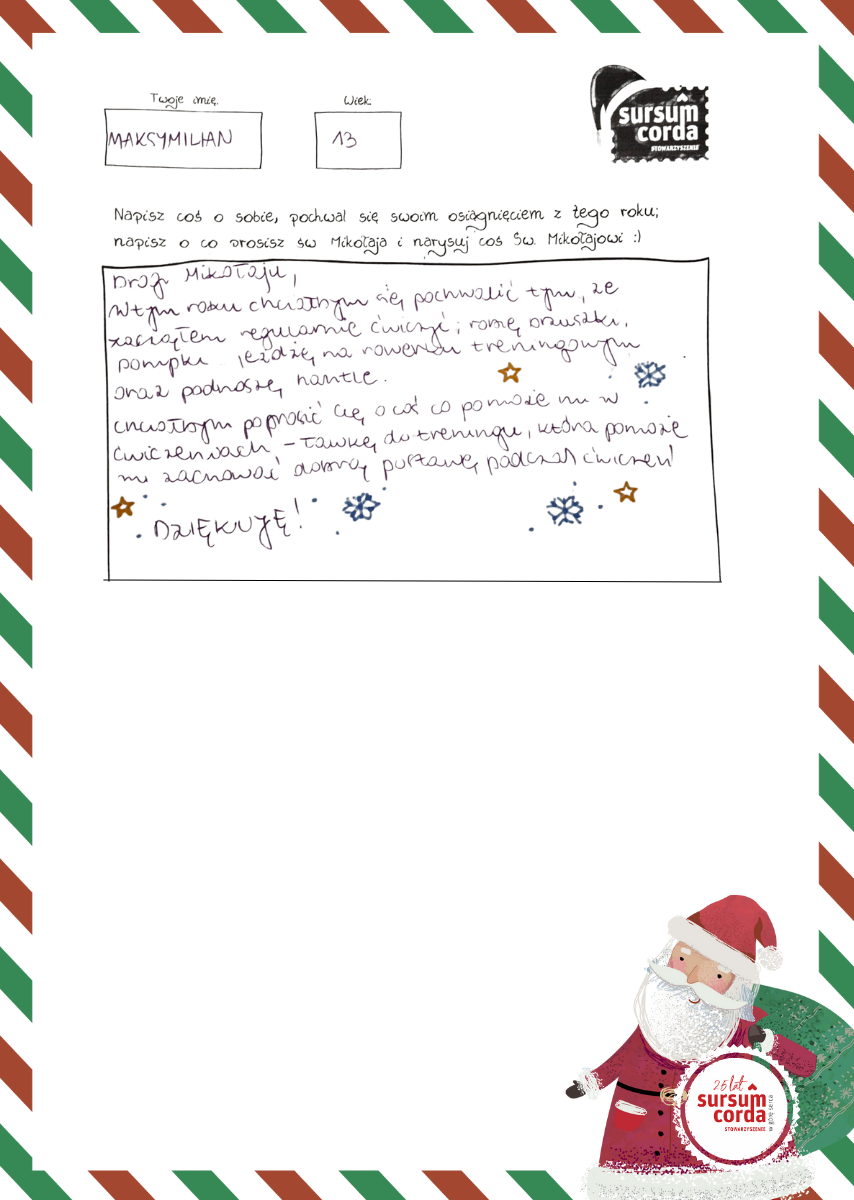 Twoje imię.
Wiek.
MAKSYMILIAN
13
sursum
corda
STOWARZYSZENIE
Napisz coś o sobie, pochwal się swoim osiągnięciem z tego roku;
napisz o co prosisz św Mikołaja i narysuj coś Św. Mikołajowi :)
Drogi Mikołaju,
W tym roku chciałbym się pochwalić tym, że
zacząłem regularnie ćwiczyć; robię brzuszki,
pompki jeżdżę na rowerku treningowym
oraz podnoszę hantle.
chciałbym poprosić Cię o coś co pomoże mi w
ćwiczeniach, - ławkę do treningu, która pomoże
mi zachować dobrą postawę podczas ćwiczeń!
DZIĘKUJĘ!
25 lat
sursum
corda
STOWARZYSZENIE
w górę serca